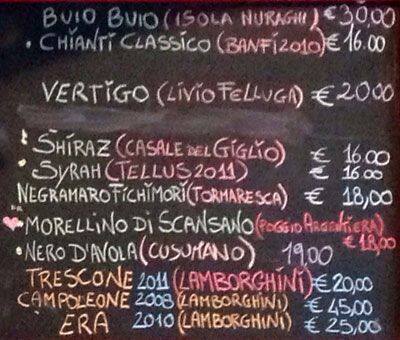 BUIO BUIO (ISOLA NURAGHI) € 30,00
• CHIANTI CLASSICO (BANFI 2010) € 16.00
VERTIGO (LIVIO FELLUGA) € 20.00
SHIRAZ (CASALE DEL GIGLIO) € 16.00
• SYRAH (TELLUS 2011) € 16.00
NEGRAMARO FICHIMORI (TORMARESCA) € 18,00
MORELLINO DI SCANSANO (POGGIO ARGENTIERA) € 18,00
• NERO D'AVOLA (CUSUMANO) 19,00
TRESCONE 2011 (LAMBORGHINI) € 20,00
CAMPOLEONE 2008 (LAMBORGHINI) € 45,00
ERA 2010 (LAMBORGHINI) € 25,00